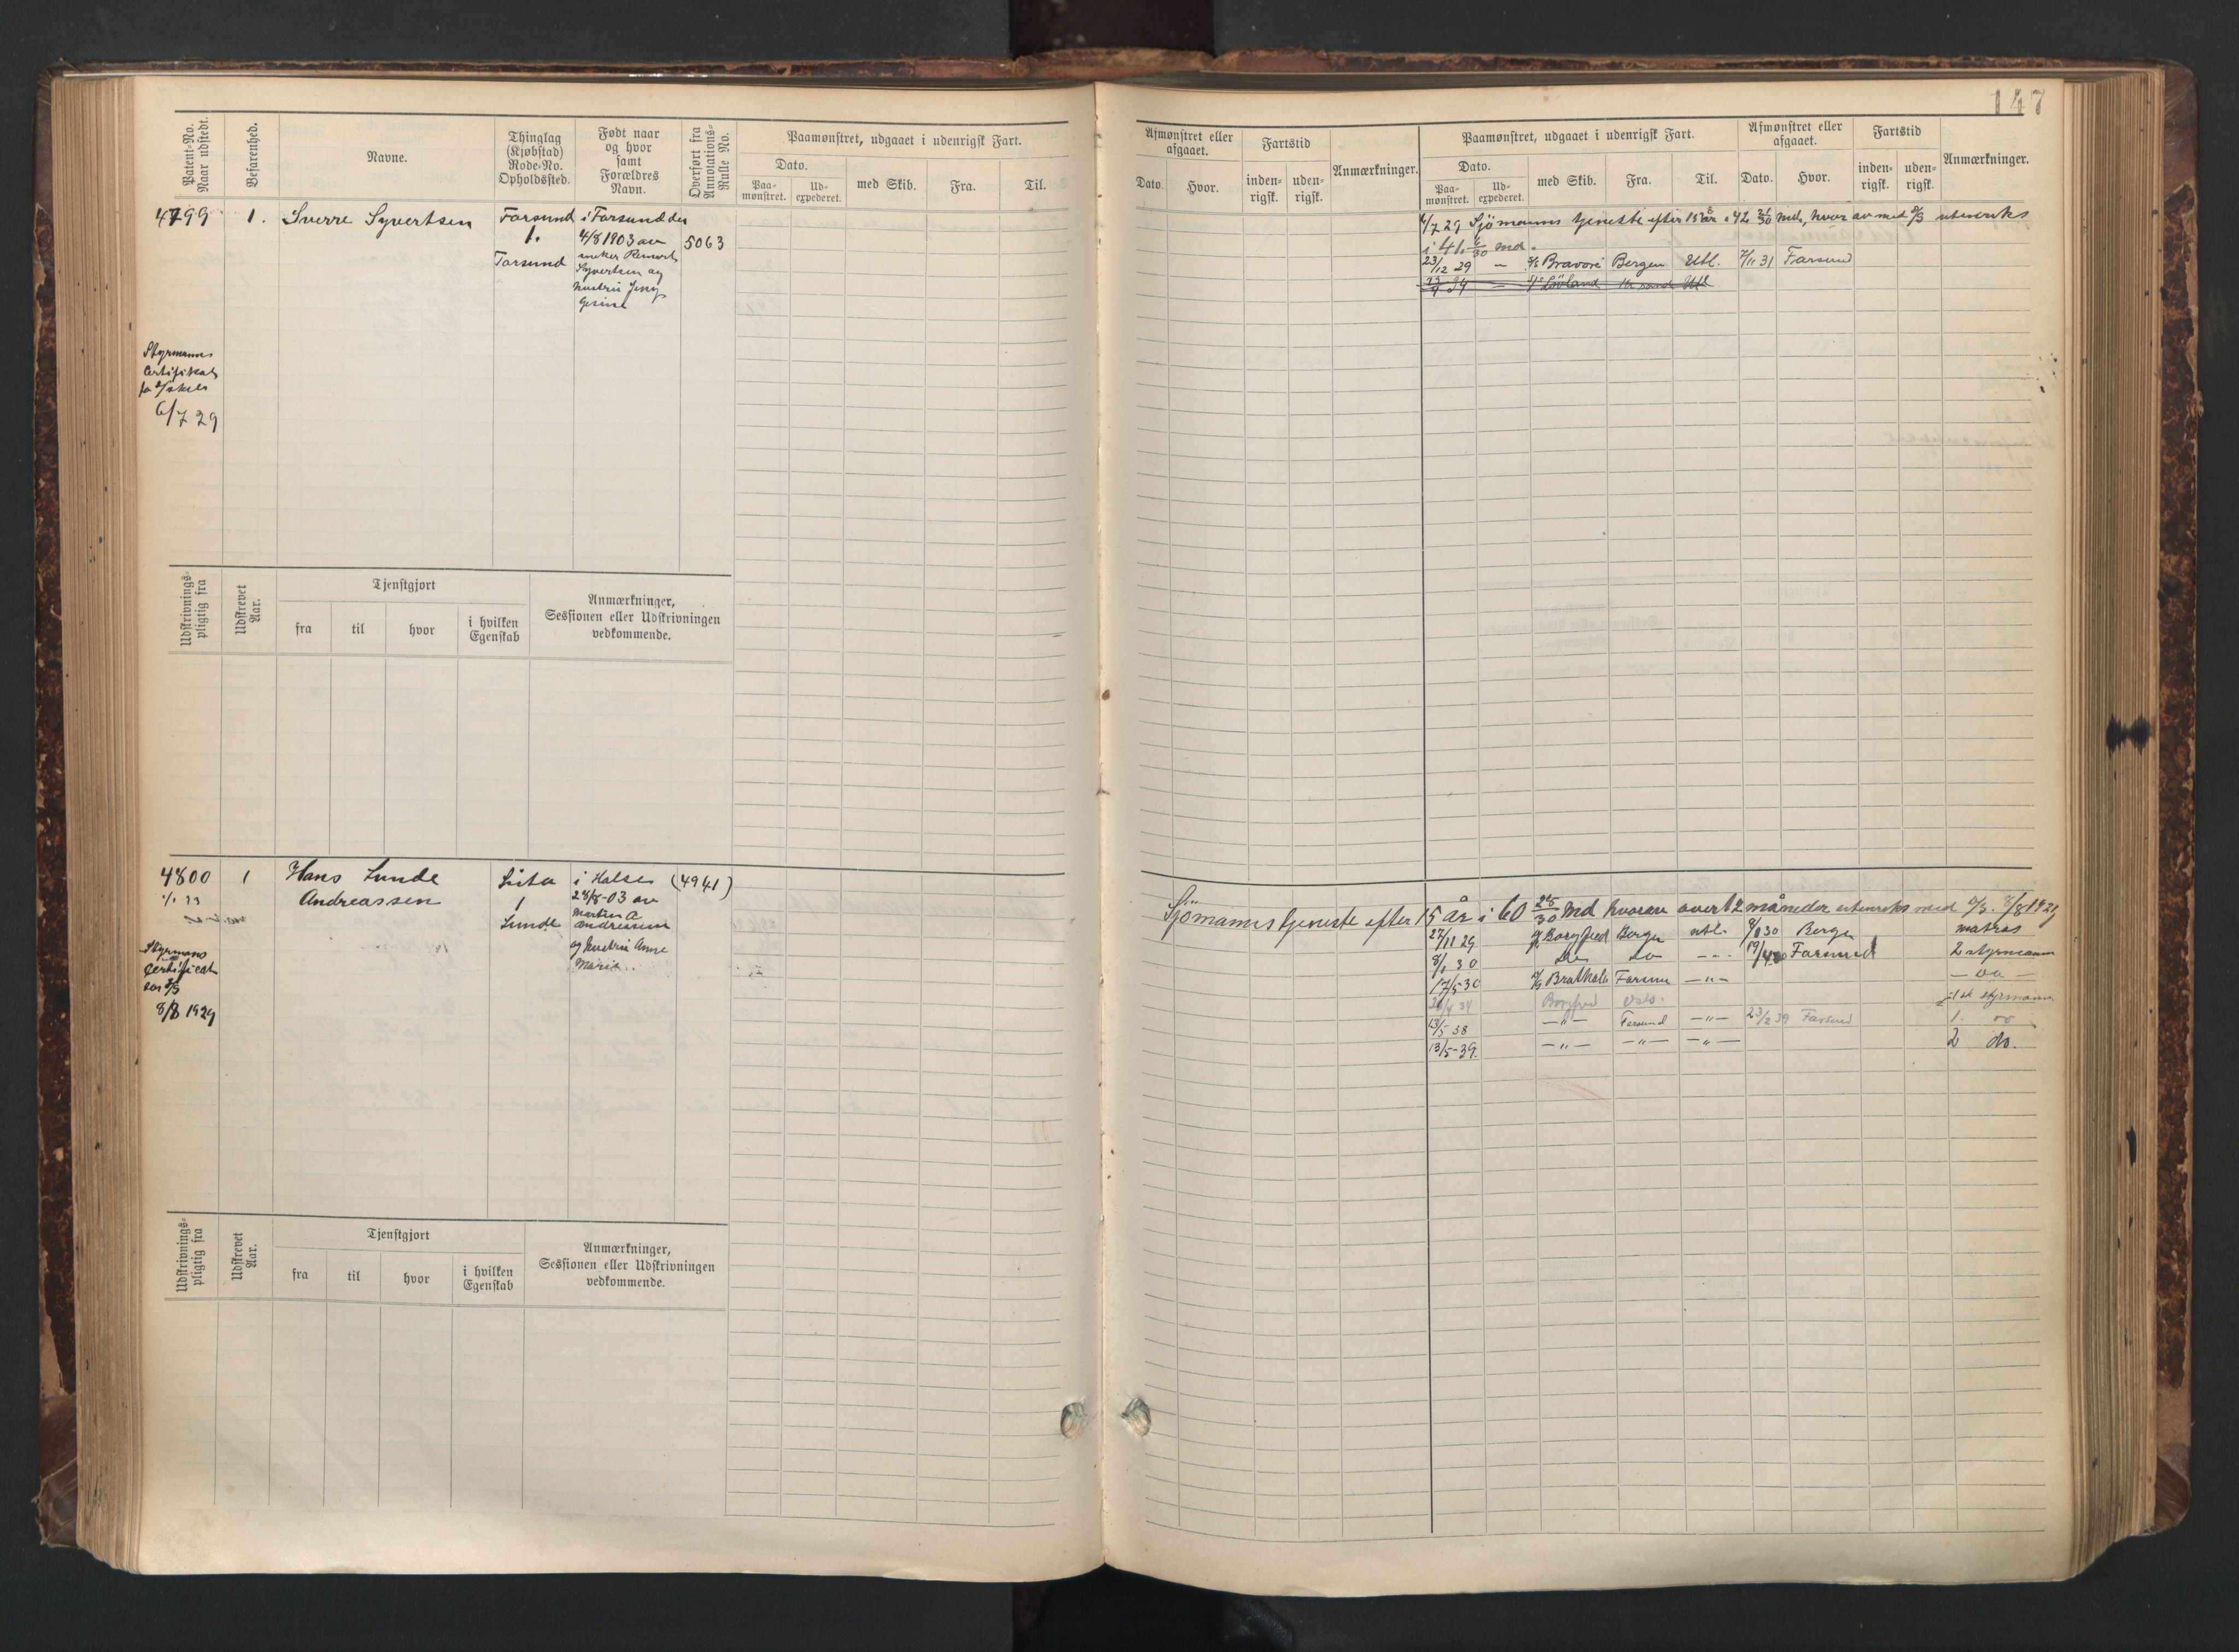 147
Patent-No. Naar udstedt.
Befarenhed.
Navne.
Thinglag (Kjøbstad) Rode-No. Opholdssted.
Født naar og hvor samt Forældres Navn.
Overført fra Annotations-Rulle No.
Paamønstret, udgaaet i udenrigsk Fart.
Dato.
Paa-mønstret.
Ud-expederet.
med Skib.
Fra.
Til.
4799
1.
Sverre Syvertsen
Farsund
1.
Farsund
i Farsund den
4/8 1903 av
Syvertsen og
hustru Jeny
Gesine
5063
Styrmanns
Certifikat
6/7 29
Udskrivnings-pligtig fra
Udskrevet Aar.
Tjenstgjort
fra
til
hvor
i hvilken Egenskab
Anmærkninger,
Sessionen eller Udskrivningen
vedkommende.
4800
1
Hans Lunde
Andreassen
Lista
1
Lunde
i Halse
28/8-03 av
Martin A
Andreassen
og hustru Anne
Marie.
(4941)
Styrmans
Certificat
8/8 1929
Udskrivnings-pligtig fra
Udskrevet Aar.
Tjenstgjort
fra
til
hvor
i hvilken Egenskab
Anmærkninger,
Sessionen eller Udskrivningen
vedkommende.
Afmønstret eller afgaaet.
Dato.
Hvor.
Fartstid
inden-rigsk.
uden-rigsk.
Anmærkninger.
Paamønstret, udgaaet i udenrigsk Fart.
Dato.
Paa-mønstret.
Ud-expederet.
med Skib.
Fra.
Til.
Afmønstret eller afgaaet.
Dato.
Hvor.
Fartstid
inden-rigsk.
uden-rigsk.
Anmærkninger.
6/7 29 Sjömanns tjeneste efter 15 år i 42 21/30 md, hvor av med D/S utenriks
i 41 6/30 md.
23/12 29 — Bravore Bergen Utl. 7/11 31 Farsund
Sjömanns tjeneste efter 15 år i 60 25/30 md hvorav over 12 måneder utenriks med D/S. 8/8 1929
27/11 29 Borgfred Bergen utl. 8/1 30 Bergen matros
8/1 30 Do Do — 19/4 30 Farsund 2 styrmann
17/5 30 Brathole Farsun — " — — oo —
34 Borgfred Oslo. 1ste styrmann
13/5 38 — " — Farsund — " — 23/2 39 Farsund 1. oo
13/5-39. — " — — " — — " — 2 do.